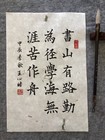 書山有路勤
為徑學海無
涯苦作舟
甲辰